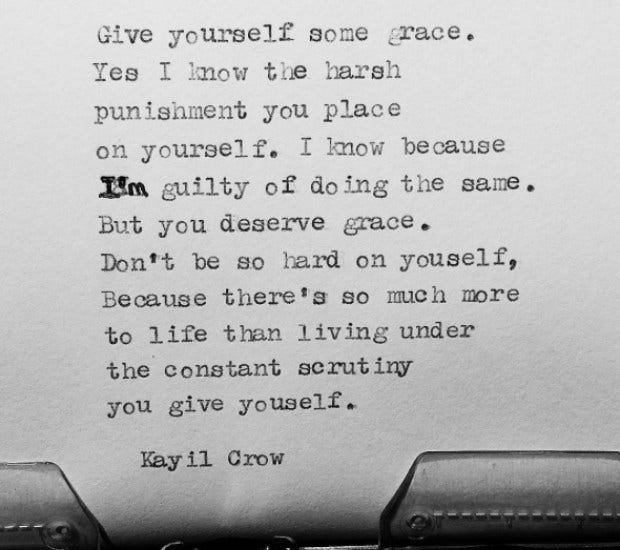 Give yourself some grace.
Yes I know the harsh
punishment you place
on yourself. I know because
I'm guilty of doing the same.
But you deserve grace.
Don't be so hard on youself,
Because there's so much more
to life than living under
the constant scrutiny
you give youself.
Kayil Crow